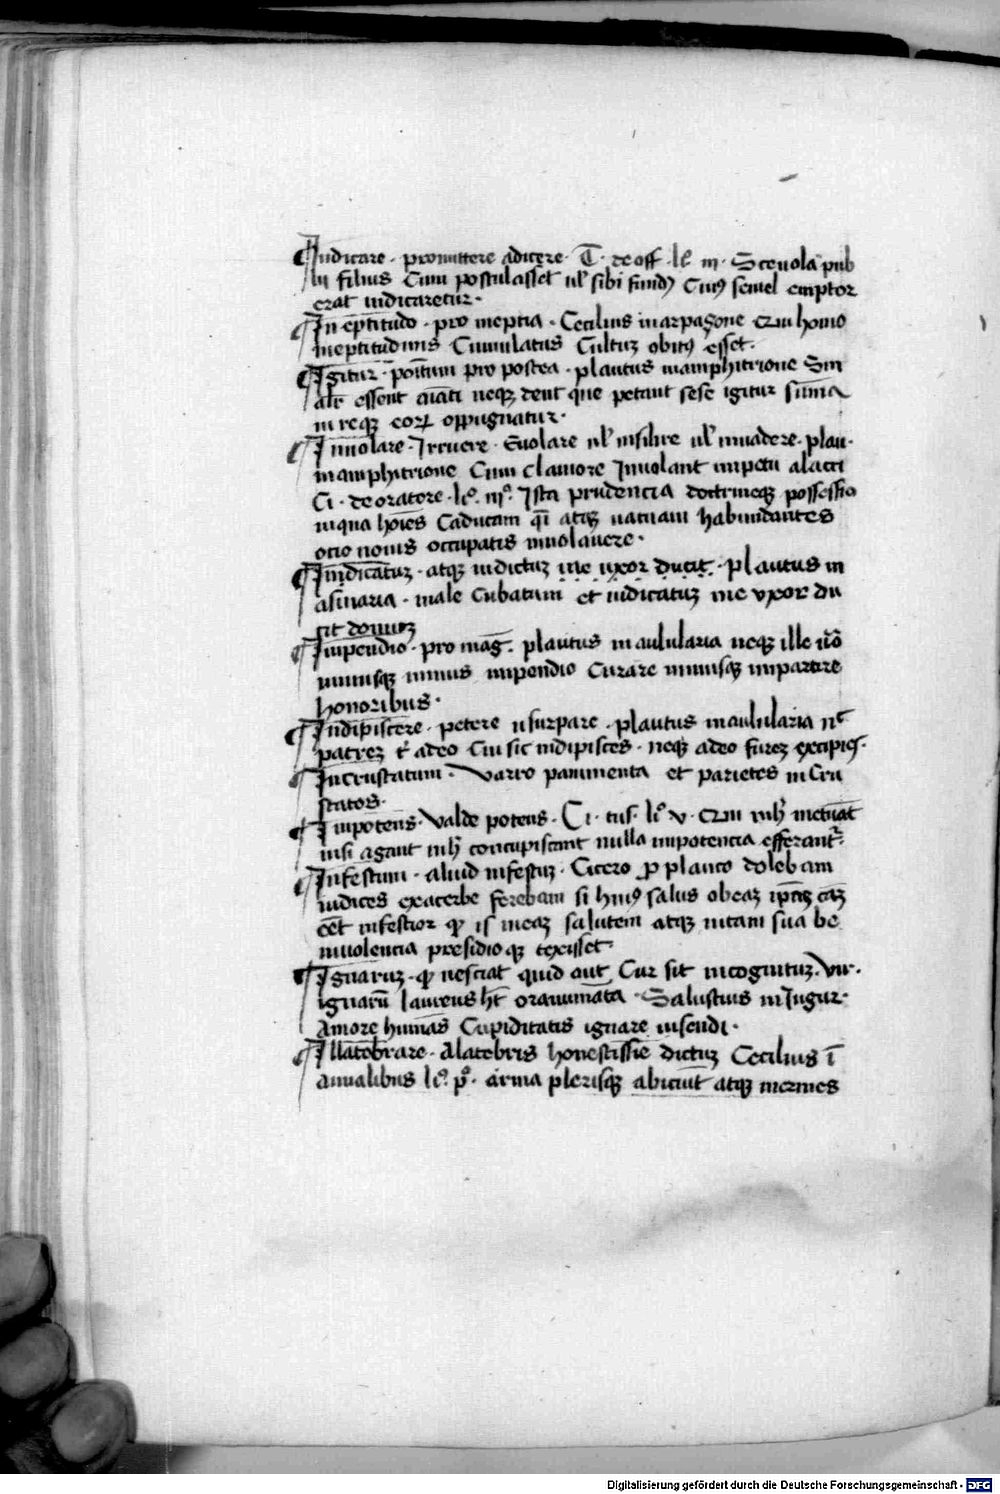 Indicare · promittere adicere · T · de off · li · iii · Sceuola pub
lii filius Cum postulasset ut sibi fundus Cuius semel emptor
erat indicaretur ·
In eptitudo · pro ineptia · Cecilius in arpagone cum homo
ineptitudinis Cumulatus Cultuz obitus esset ·
Igitur · positum pro postea · plautus in amphitrione Sin
alr essent aiati neqz dent que petant sese igitur summa
in reqz eorum oppugnatur ·
Inuolare · Irruere · Euolare ul insilire ul inuadere · plau ·
in amphitrione Cum clamore Inuolant impetu alacri
Ci · de oratore · li° · iii° · Ista prudencia doctrineqz possessio
in qua hoies Caducam qi atqz uacuam habundantes
ocio nouis occupatis inuolauere ·
Indicatuz · atqz indictuz me uxor ducit · plautus in
asinaria · male Cubatum et iudicatuz me vxor du
cit domuz
Impendio · pro mag · plautus in aulularia neqz ille uo
unusqz minus impendio Curare minusqz impartire
honoribus ·
Indipiscere · petere usurpare · plautus in aulularia nc
patrez t adeo Cui sic indipisces · neqz adeo furez excipies ·
Incrustatum · varro pammenta et parietes in Cru
statos ·
Impotens · valde potens · Ci · tus · li° v · cum nihil metuat
nisi agant nihil concupiscant nulla impotencia efferantur ·
Infestum · aliud infestuz · Cicero pro planco dolebam
iudices exacerbe ferebam si huius salus obeaz ipsas caz
cet infestior quod is meaz salutem atqz uitam sua be
niuolencia presidio qz texisset ·
Ignaruz · quod nesciat quid aut Cur sit incognituz · vir ·
ignaru laureus ht orauumata · Salustius in Iugur ·
Amore humas Cupiditatis ignare uisendi ·
Illatebrare · Alatebris honestissie dictuz Cecilius i
annalibus li° · p° · arma plerisqz abiciut atqz inermes
Digitalisierung gefördert durch die Deutsche Forschungsgemeinschaft - DFG